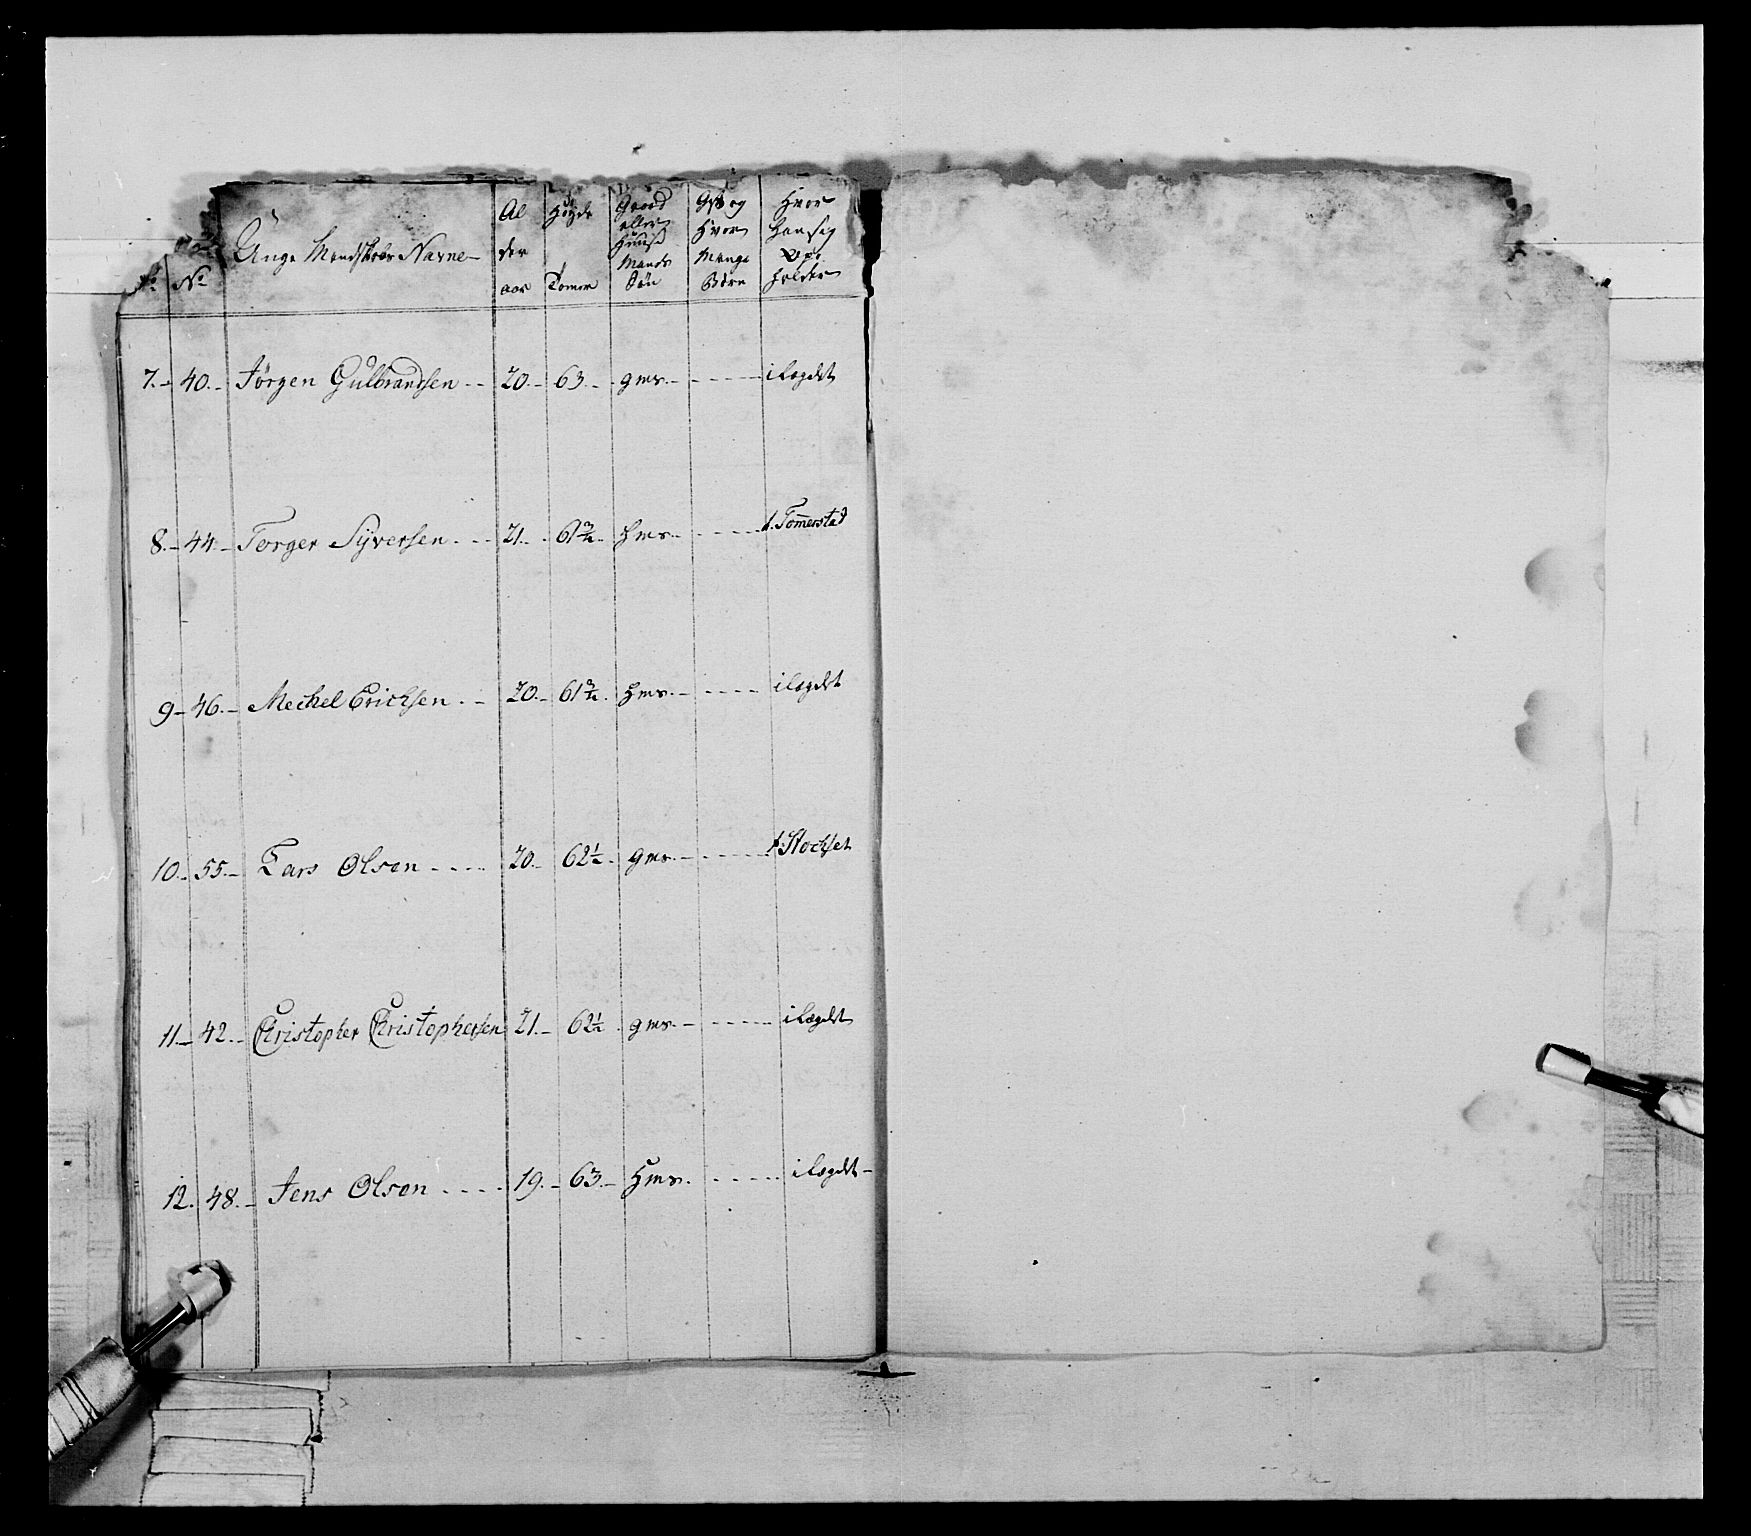 No
No
Unge Mandskabs Navne
Al
der
aar
Höyde
Tomer
Gaard
eller
Huus
Mands
Søn
Gift og
Hvor
Mange
Børn
Hvor
han sig
Op
holder
7. 40. Jørgen Gulbrandsen 20. 63. gms. i Lægdet
8. 44. Torger Syversen 21. 61 3/4. hms. i Tom̄erstad
9 46. Mechel Erichsen 20. 61 3/4. hms. i Lægdet
10. 55. Lars Olsen 20. 62 1/2. gms. i Stochset
11. 42. Christopher Christophersen 21. 62 1/2. gms. i Lægdet
12. 48. Jens Olsen 19. 63. Hms. i Lægdet